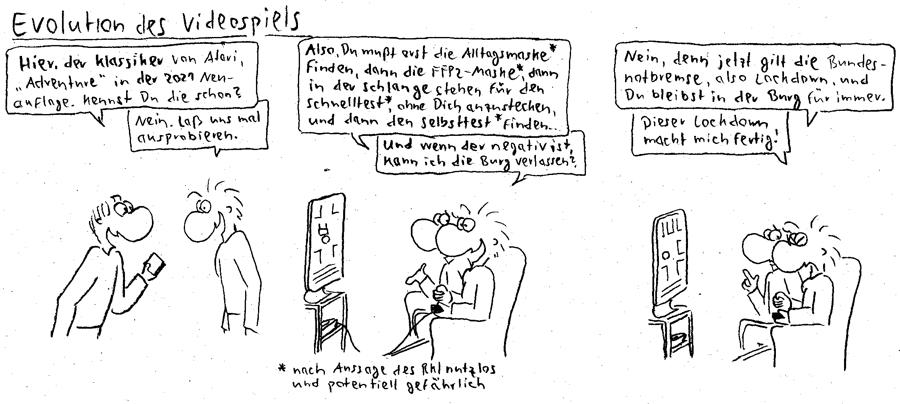 Evolution des Videospiels
Hier, der Klassiker von Atari,
„Adventure" in der 2021 Neu-
auflage. Kennst Du die schon?
Nein. Laß uns mal
ausprobieren.
Also, Du mußt erst die Alltagsmaske*
finden, dann die FFP2-Maske*, dann
in der Schlange stehen für den
Schnelltest*, ohne Dich anzustecken,
und dann den Selbsttest* finden...
Und wenn der negativ ist,
kann ich die Burg verlassen?
Nein, denn jetzt gilt die Bundes-
notbremse, also Lockdown, und
Du bleibst in der Burg für immer.
Dieser Lockdown
macht mich fertig!
* nach Aussage des RKI nutzlos
und potentiell gefährlich